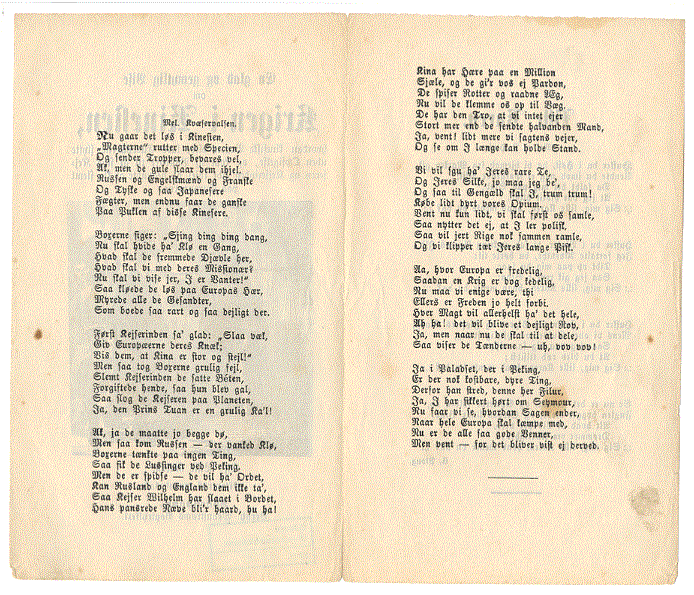 Mel. Kvæservalsen.
Nu gaar det løs i Kinesien,
„Magterne“ rutter med Specien,
Og sender Tropper, bevares vel,
Ak, men de gule slaar dem ihjel.
Russen og Engelskmænd og Franske
Og Tyske og saa Japanesere
Fægter, men endnu faar de ganske
Paa Puklen af disse Kinesere.
Boxerne siger: „Sjing ding ding dang,
Nu skal hvide ha' Klø en Gang,
Hvad skal de fremmede Djævle her,
Hvad skal vi med deres Missionær?
Nu skal vi vise jer, I er Vanter!“
Saa kløede de løs paa Europas Hær,
Myrede alle de Gesandter,
Som boede saa rart og saa dejligt der.
Først Kejserinden sa' glad: „Slaa væk,
Giv Europæerne deres Knæk;
Vis dem, at Kina er stor og stejl!“
Men saa tog Boxerne grulig fejl,
Slemt Kejserinden de satte Boten,
Forgiftede hende, saa hun blev gal,
Saa slog de Kejseren paa Planeten,
Ja, den Prins Tuan er en grulig Ka'l!
Ak, ja de maatte jo begge dø,
Men saa kom Russen — der vanked Klø,
Boxerne tænkte paa ingen Ting,
Saa fik de Lussinger ved Peking.
Men de er spidse — de vil ha' Ordet,
Kan Rusland og England dem ikke ta',
Saa Kejser Wilhelm har slaaet i Bordet,
Hans pansrede Næve bli'r haard, hu ha!
Kina har Hære paa en Million
Sjæle, og de gi'r vos ej Pardon,
De spiser Rotter og raadne Æg,
Nu vil de klemme os op til Væg.
De har den Tro, at vi intet ejer
Stort mer end de sendte halvanden Mand,
Ja, vent! lidt mere vi sagtens vejer,
Og se om I længe kan holde Stand.
Vi vil sgu ha' Jeres rare Te,
Og Jeres Silke, jo maa jeg be',
Og saa til Gengæld skal I, trum trum!
Købe lidt dyrt vores Opium.
Vent nu kun lidt, vi skal først os samle,
Saa nytter det ej, at I ler polisk,
Saa vil jert Rige nok sammen ramle,
Og vi klipper tæt Jeres lange Pisk.
Aa, hvor Europa er fredelig,
Saadan en Krig er dog kedelig,
Nu maa vi enige være, thi
Ellers er Freden jo helt forbi.
Hver Magt vil allerhelst ha' det hele,
Ah ha! det vil blive et dejligt Rov,
Ja, men naar nu de skal til at dele,
Saa viser de Tænderne — uh, vov vov!
Ja i Paladset, der i Peking,
Er der nok kostbare, dyre Ting,
Derfor han stred, denne her Filur,
Ja, I har sikkert hørt om Seymour,
Nu faar vi se, hvordan Sagen ender,
Naar hele Europa skal kæmpe med,
Nu er de alle saa gode Venner,
Men vent — for det bliver vist ej derved.